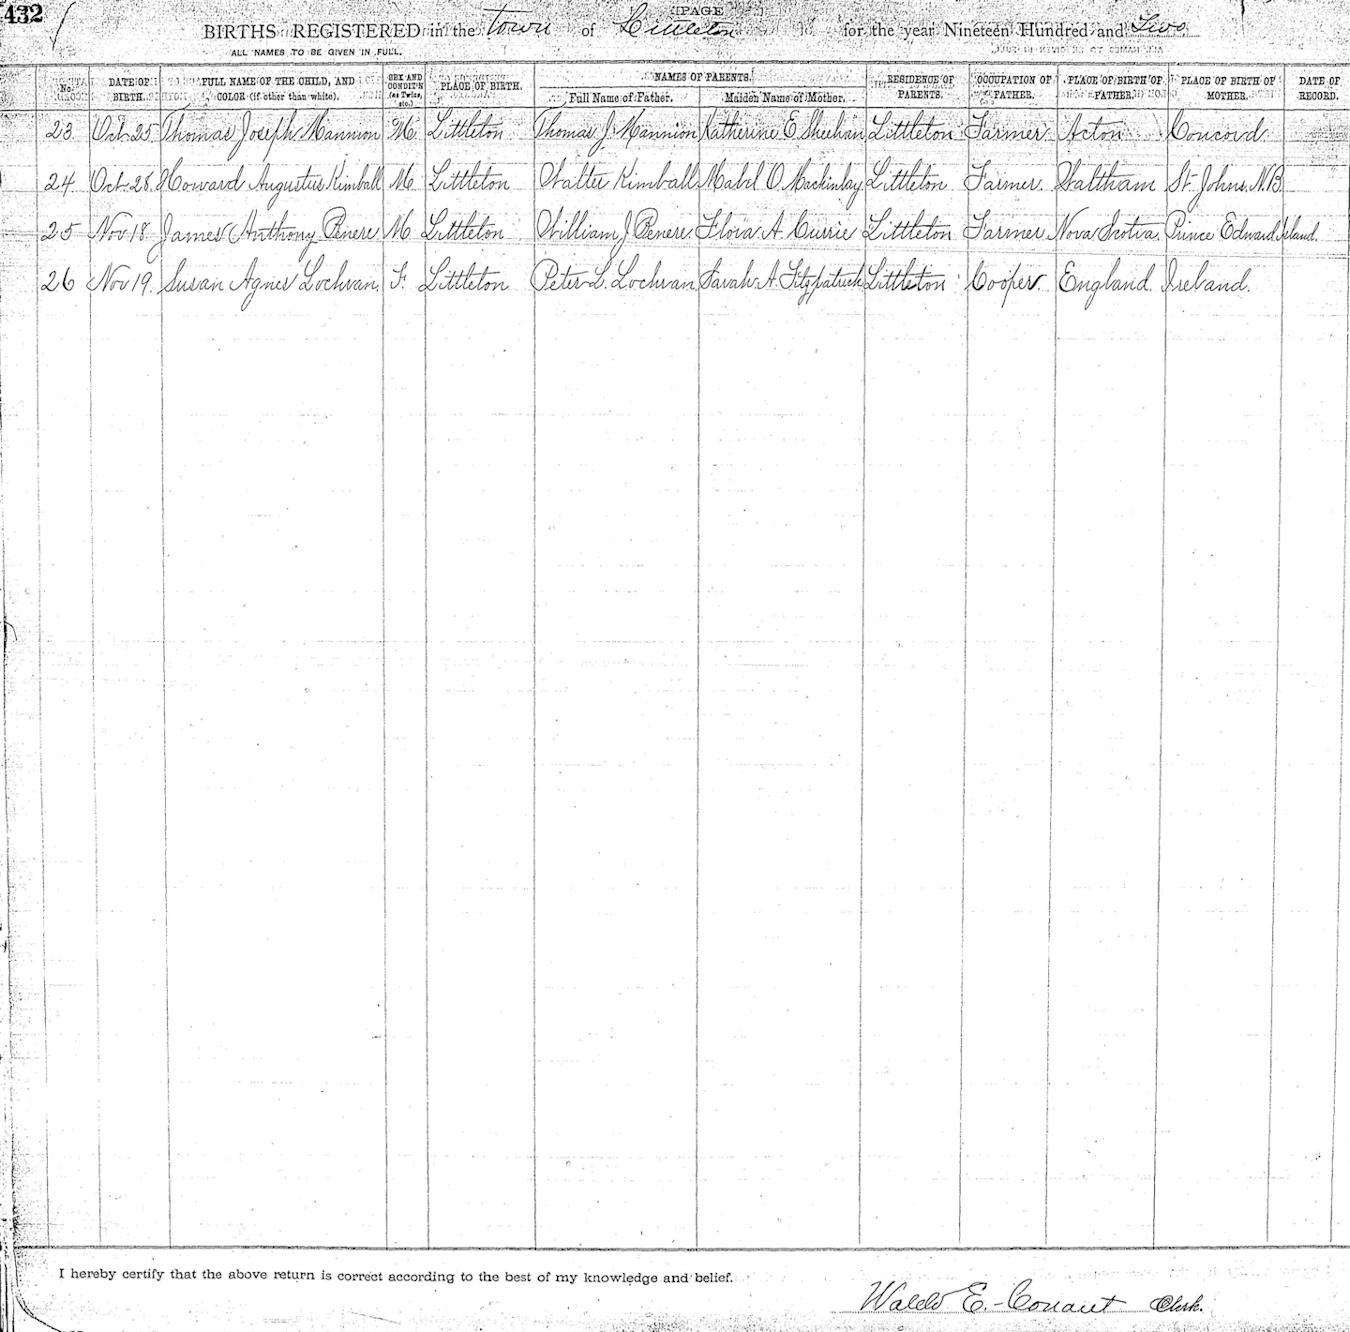 432
PAGE
BIRTHS REGISTERED in the town of Littleton for the year Nineteen Hundred and Two
ALL NAMES TO BE GIVEN IN FULL.
No. DATE OF BIRTH. FULL NAME OF THE CHILD, AND COLOR (if other than white). SEX AND CONDIT'N (as Twins, etc.) PLACE OF BIRTH. NAMES OF PARENTS. Full Name of Father. Maiden Name of Mother. RESIDENCE OF PARENTS. OCCUPATION OF FATHER. PLACE OF BIRTH OF FATHER. PLACE OF BIRTH OF MOTHER. DATE OF RECORD.
23 Oct 25 Thomas Joseph Mannion M. Littleton Thomas J. Mannion Katherine E. Sheehan Littleton Farmer Acton Concord
24 Oct 28. Howard Augustus Kimball M. Littleton Walter Kimball Mabel O. Mackinlay Littleton Farmer. Waltham St. Johns, N.B
25 Nov 18 James Anthony Penere M Littleton William J Penere Flora A. Currie Littleton Farmer Nova Scotia Prince Edward Island.
26 Nov 19. Susan Agnes Lochran F. Littleton Peter L. Lochran Sarah A Fitzpatrick Littleton Cooper England. Ireland.
I hereby certify that the above return is correct according to the best of my knowledge and belief.
Waldo E. Conant Clerk.